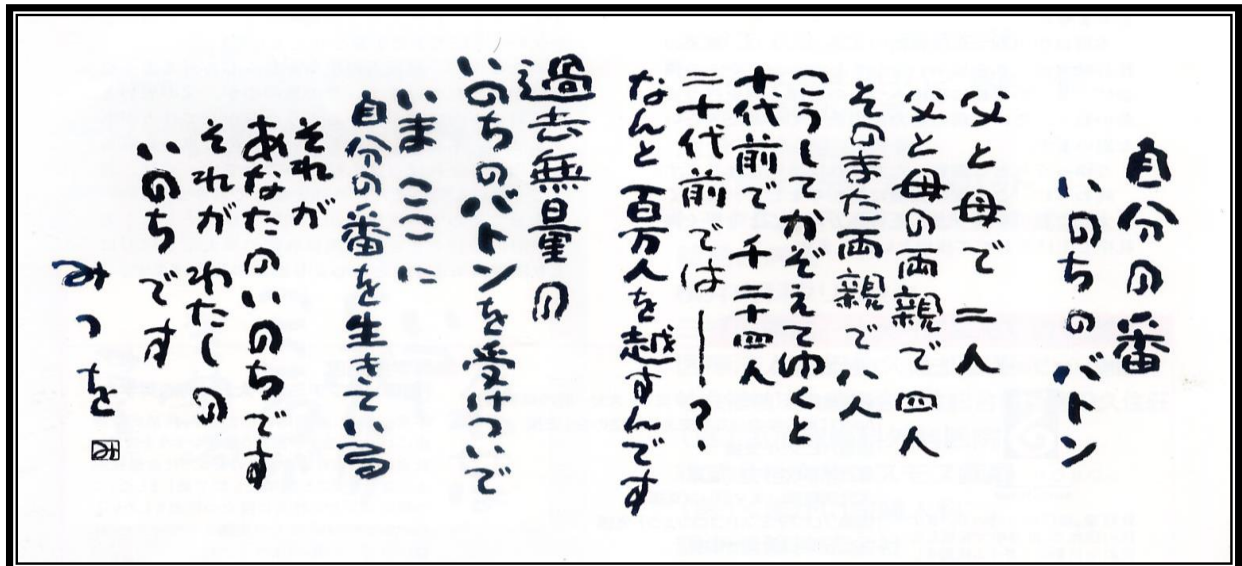 自分の番
いのちのバトン
父と母で二人
父と母の両親で四人
そのまた両親で八人
こうしてかぞえてゆくと
十代前で千二十四人
二十代前では―？
なんと百万人を越すんです
過去無量の
いのちのバトンを受けついで
いまここに
自分の番を生きている
それが
あなたのいのちです
それがわたしの
いのちです
みつを
み